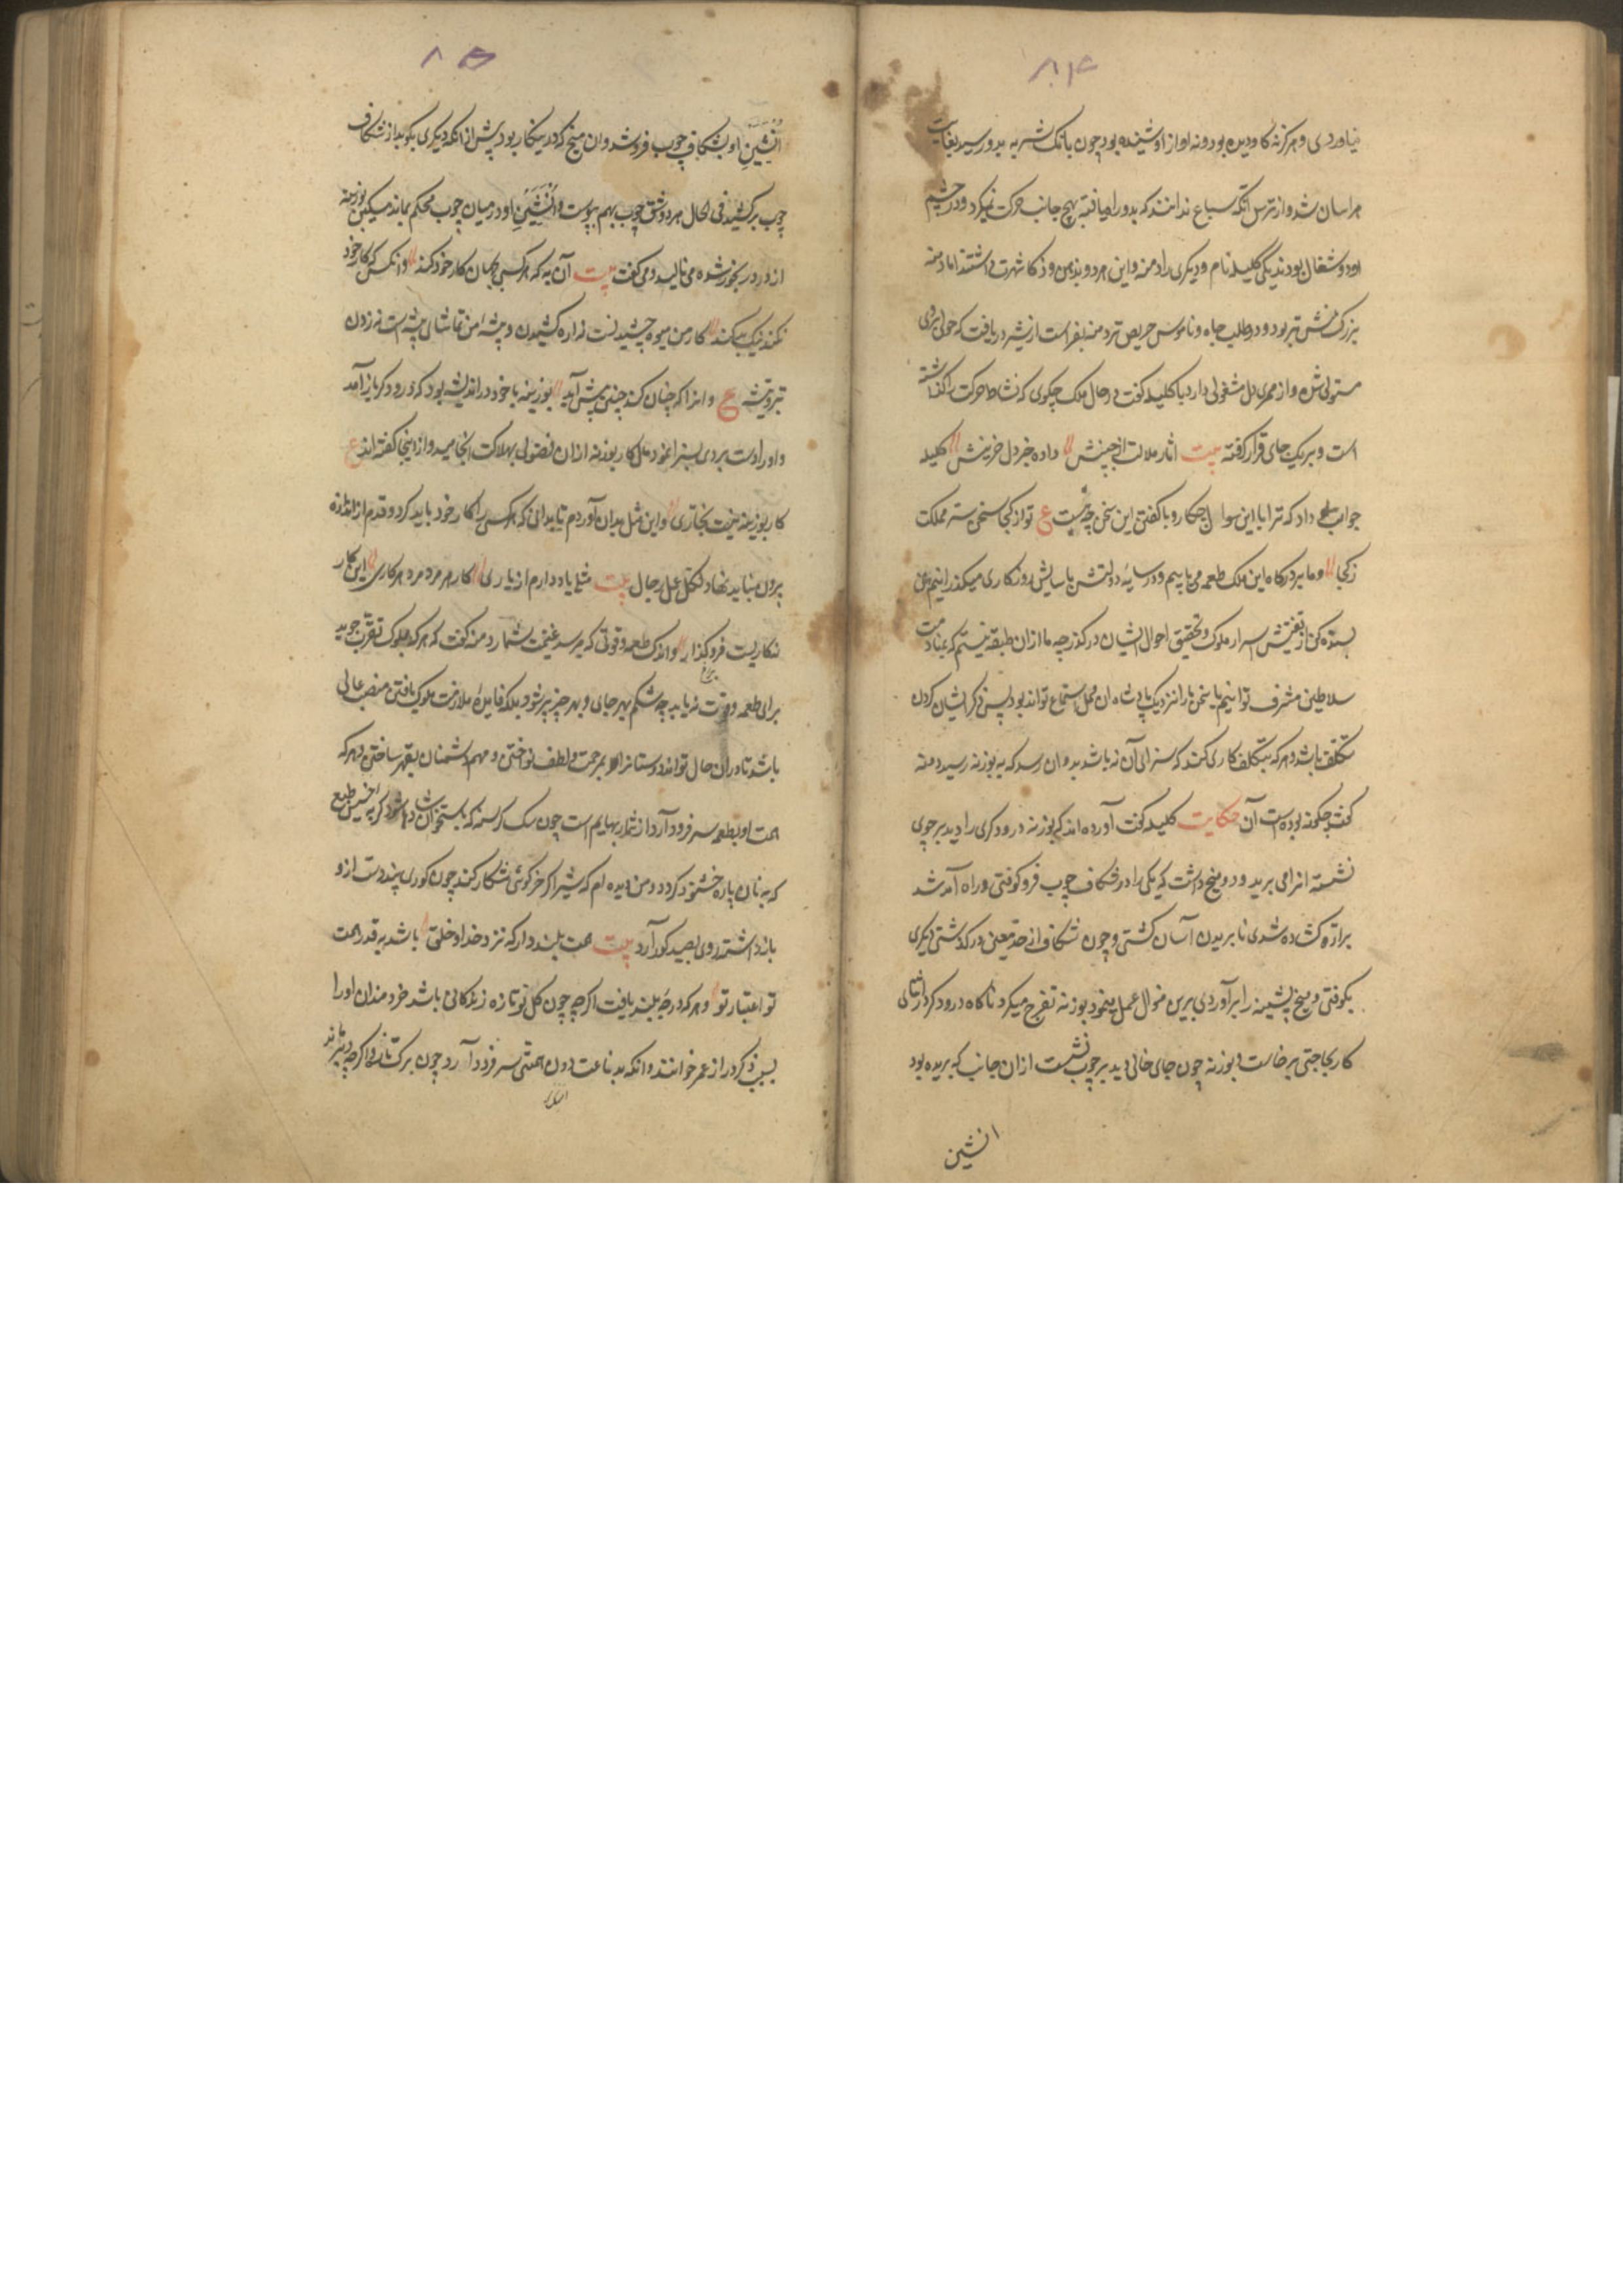 ۸۴
نیاوردی و هرگز نه گاو دیده بود و نه آواز او شنیده بود چون بانک شتربه بدو رسید بغایت
هراسان شد و از ترس آنکه سباع ندانند که بدو راه یافته بهیچ جانب حرکت نمیکرد و در حشم
او دو شغال بودند یکی کلیله نام و دیگری را دمنه و این هر دو بذهن و ذکا شهرت داشتند اما دمنه
بزرگ منش تر بود و در طلب جاه و ناموس حریص تر دمنه بفراست از شیر دریافت که خوفی بروی
مستولی شده و از ممری دل مشغولی دارد با کلیله گفت در حال ملک چگوی که نشاط حرکت را گذاشته
است و بر یک جای قرار گرفته بیت آثار ملالت از جبینش داده خبر دل حزینش کلیله
جواب داد که ترا با این سوال چکار و با گفتن این سخن چه نسبت ع تو از کجا سخن سر مملکت
ز کجا و ما بر درگاه این ملک طعمه می یابیم و در سایهٔ دولتش باسایش روزگاری میگذرانیم برین
بسنده کن از تفتیش اسرار ملوک و تحقیق احوال ایشان درگذر چه ما از آن طبقه نیستیم که بمنادمت
سلاطین مشرف توانیم یا سخن ما را نزدیک پادشاهان محل استماع تواند بود پس ذکر ایشان کردن
تکلف باشد و هر که بتکلف کاری کند که سزای آن نه باشد بدو آن رسد که به بوزنه رسید دمنه
گفت چگونه بوده است آن حکایت کلیله گفت آورده اند که بوزنه درودگری را دید بر چوبی
نشسته آنرا می برید و دو میخ داشت که یکی را در شکاف چوب فرو کوفتی و راه آمد شد
بر اره کشاده شدی تا بریدن آسان گشتی و چون شکاف از حد معین درگذشتی دیگری
بکوفتی و میخ پیشینه را برآوردی برین منوال عمل مینمود بوزنه تفرج میکرد ناگاه درودگر در اثنای
کار بحاجتی برخاست و بوزنه چون جای خالی دید بر چوب نشست از آن جانب که بریده بود
انثیین
۸۵
انثیین او بشکاف چوب فرو شد و آن میخ که در پیش کار بود پیش از آنکه دیگری بکوبد از شکاف
چوب برکشید فی الحال هر دو شق چوب بهم پیوست و انثیین او در میان چوب محکم بماند مسکین بوزینه
از درد رنجور شده می نالید و می گفت بیت آن به که هر کسی بجهان کار خود کند وانکس که کار خود
نکند نیک بد کند کار من میوه چشیدنست نه اره کشیدن و پیشه من تماشای بیشه است نه زدن
تبر و تیشه ع و انرا که چنان کند چنین پیش آید بوزینه با خود در اندیشه بود که درودگر باز آمد
و او را دست بردی بسزا نمود و مآل کار بوزنه از آن فضولی بهلاکت انجامید و از اینجا گفته اند ع
کار بوزینه نیست نجاری و این مثل بدان آوردم تا بدانی که هر کسی را کار خود باید کرد و قدم از اندازه
بیرون نباید نهاد لکل عمل رجال بیت مثلی یاد دارم از یاری کار هر مرد مرد هر کاری این کار
نه کار تست فروگذار و اندک طعمه و قوتی که میرسد غنیمت شمار دمنه گفت که هر که بملوک تقرب جوید
برای طعمه و قوت نه باید چه شکم بهر جای و بهر چیز پر شود بلکه فایدهٔ ملازمت ملوک یافتن منصب عالی
باشد تا در آن حال تواند دوستانرا بمرحمت و لطف نواختن و مهم دشمنان بقهر ساختن و هر که
همت او بطعمه سر فرود آرد از شمار بهایم است چون سگ گرسنه که باستخوان شاد شود و گربه خسیس طبع
که به نان پاره خشنود گردد و من دیده ام که شیر اگر خرگوشی شکار کند چون گوری بیند دست ازو
بازداشته روی بصید گور آرد بیت همت بلند دار که نزد خدا و خلق باشد به قدر همت
تو اعتبار تو و هر که درجهٔ بلند یافت اگرچه چون گل نو تازه زندگانی باشد خردمندان او را
بسبب ذکر دراز عمر خوانند و آنکه بدناعت و دون همتی سر فرود آرد چون برگ نار اگرچه دیر ماند